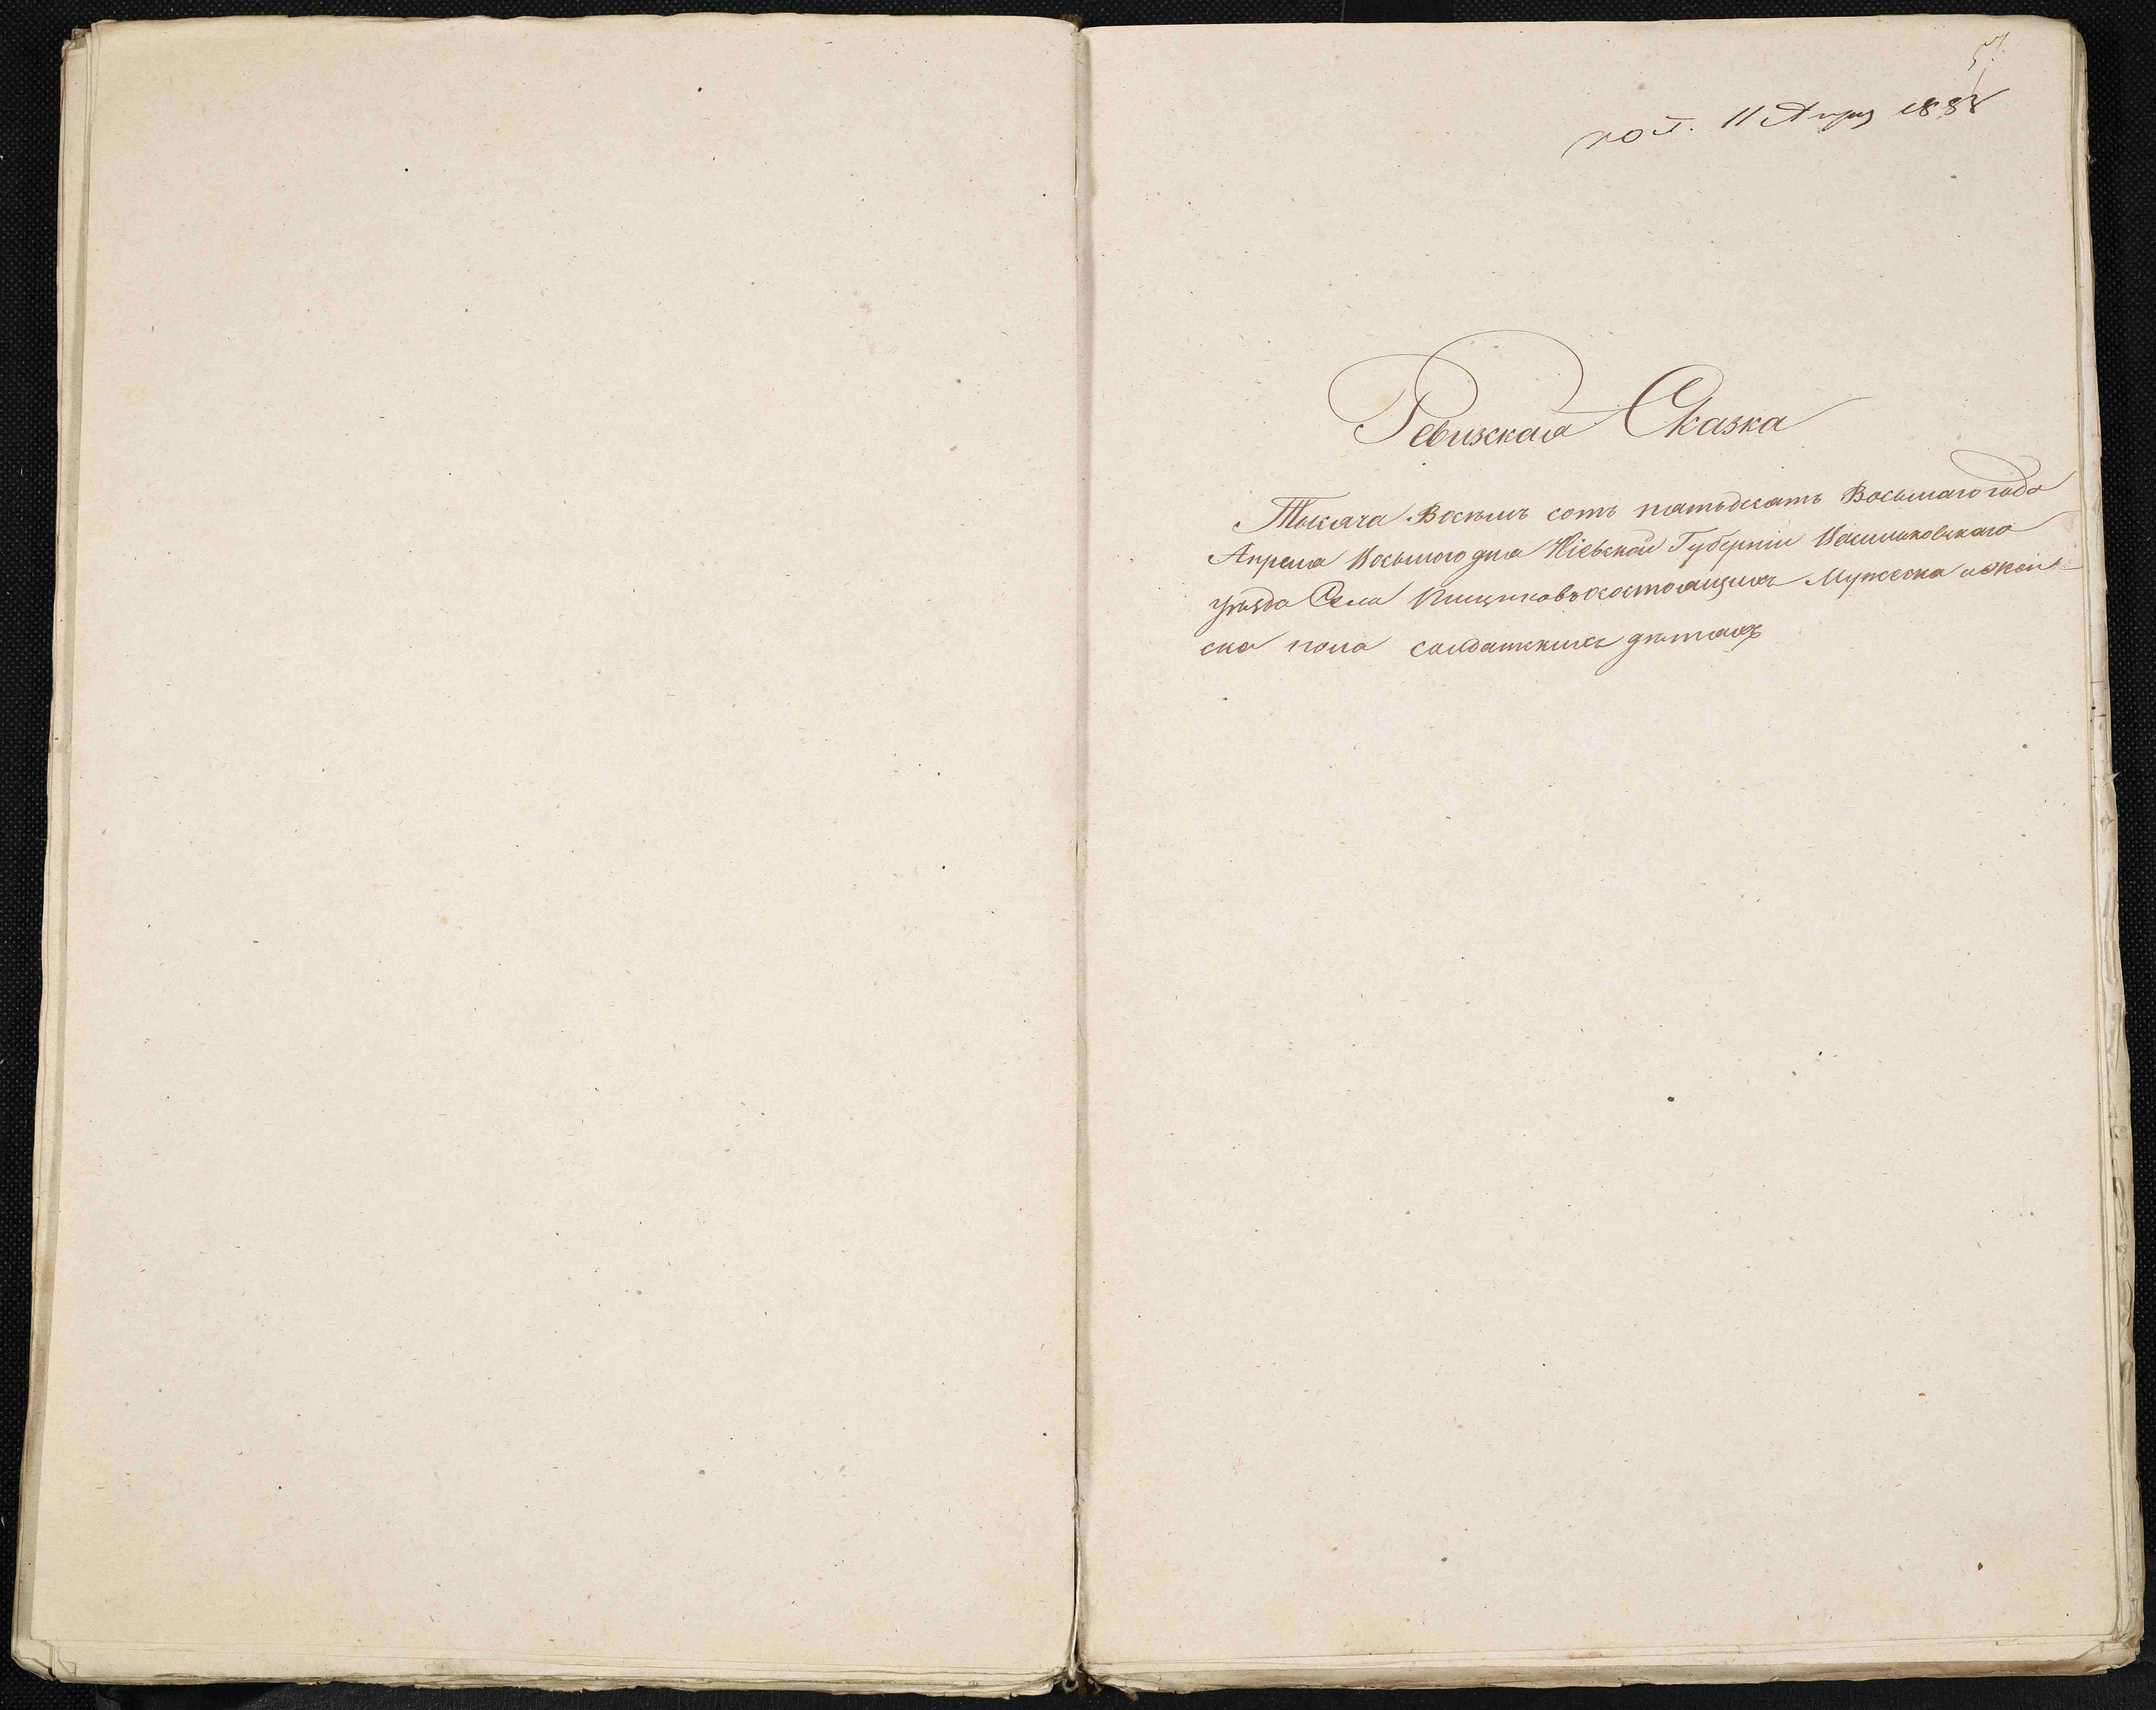 пол. 11 Апрѣ 1858
Ревизская Сказка
Тысяча Восемь сотъ пятьдесятъ Восьмаго года
Апреля Восьмого дня Кіевской Губерніи Васильковскаго
уѣзда Села Пищиковъ состоящихъ Мужеска и жен-
ска пола солдатскихъ дѣтяхъ